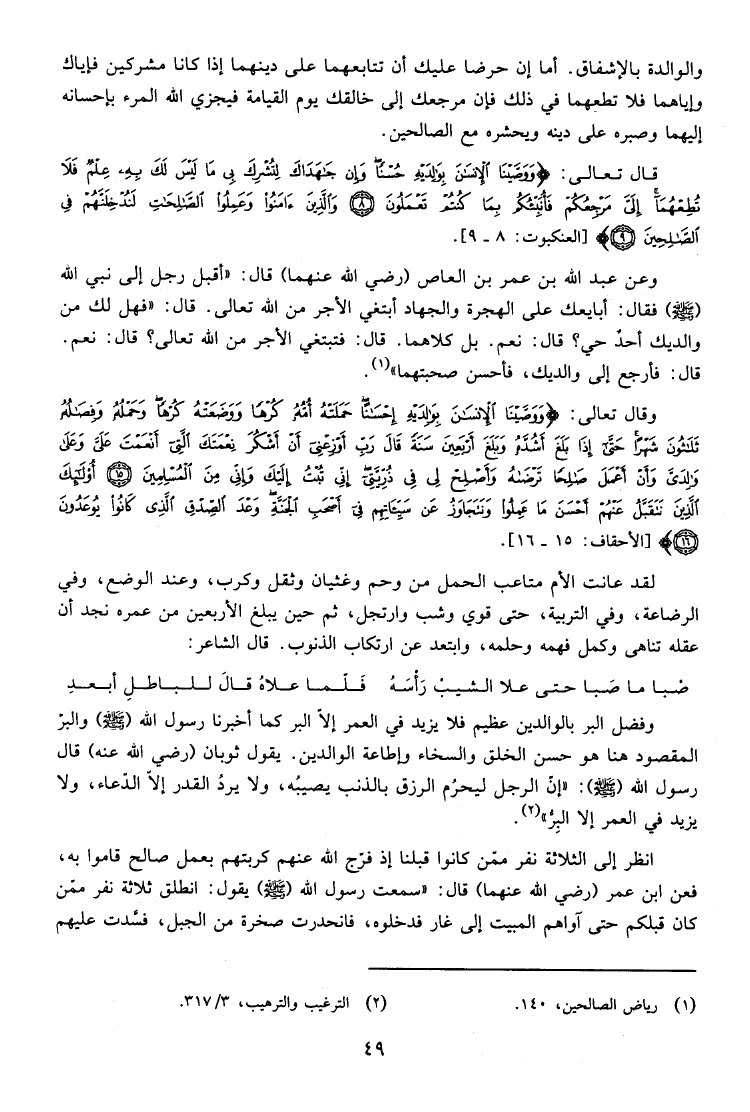 والوالدة بالإشفاق. أما إن حرضا عليك أن تتابعهما على دينهما إذا كانا مشركين فإياك
وإياهما فلا تطعهما في ذلك فإن مرجعك إلى خالقك يوم القيامة فيجزي الله المرء بإحسانه
إليهما وصبره على دينه ويحشره مع الصالحين.
قال تعالى: ﴿وَوَصَّيْنَا ٱلْإِنسَٰنَ بِوَٰلِدَيْهِ حُسْنًا ۖ وَإِن جَٰهَدَاكَ لِتُشْرِكَ بِى مَا لَيْسَ لَكَ بِهِۦ عِلْمٌ فَلَا
تُطِعْهُمَآ ۚ إِلَىَّ مَرْجِعُكُمْ فَأُنَبِّئُكُم بِمَا كُنتُمْ تَعْمَلُونَ ٨ وَٱلَّذِينَ ءَامَنُوا۟ وَعَمِلُوا۟ ٱلصَّٰلِحَٰتِ لَنُدْخِلَنَّهُمْ فِى
ٱلصَّٰلِحِينَ ٩﴾ [العنكبوت: ٨ ـ ٩].
وعن عبد الله بن عمر بن العاص (رضي الله عنهما) قال: «أقبل رجل إلى نبي الله
(ﷺ) فقال: أبايعك على الهجرة والجهاد أبتغي الأجر من الله تعالى. قال: «فهل لك من
والديك أحدٌ حي؟ قال: نعم. بل كلاهما. قال: فتبتغي الأجر من الله تعالى؟ قال: نعم.
قال: فأرجع إلى والديك، فأحسن صحبتهما»(١).
وقال تعالى: ﴿وَوَصَّيْنَا ٱلْإِنسَٰنَ بِوَٰلِدَيْهِ إِحْسَٰنًا ۖ حَمَلَتْهُ أُمُّهُۥ كُرْهًا وَوَضَعَتْهُ كُرْهًا ۖ وَحَمْلُهُۥ وَفِصَٰلُهُۥ
ثَلَٰثُونَ شَهْرًا ۚ حَتَّىٰٓ إِذَا بَلَغَ أَشُدَّهُۥ وَبَلَغَ أَرْبَعِينَ سَنَةً قَالَ رَبِّ أَوْزِعْنِىٓ أَنْ أَشْكُرَ نِعْمَتَكَ ٱلَّتِىٓ أَنْعَمْتَ عَلَىَّ وَعَلَىٰ
وَٰلِدَىَّ وَأَنْ أَعْمَلَ صَٰلِحًا تَرْضَىٰهُ وَأَصْلِحْ لِى فِى ذُرِّيَّتِىٓ ۖ إِنِّى تُبْتُ إِلَيْكَ وَإِنِّى مِنَ ٱلْمُسْلِمِينَ ١٥ أُو۟لَٰٓئِكَ
ٱلَّذِينَ نَتَقَبَّلُ عَنْهُمْ أَحْسَنَ مَا عَمِلُوا۟ وَنَتَجَاوَزُ عَن سَيِّـَٔاتِهِمْ فِىٓ أَصْحَٰبِ ٱلْجَنَّةِ ۖ وَعْدَ ٱلصِّدْقِ ٱلَّذِى كَانُوا۟ يُوعَدُونَ
١٦﴾ [الأحقاف: ١٥ ـ ١٦].
لقد عانت الأم متاعب الحمل من وحم وغثيان وثقل وكرب، وعند الوضع، وفي
الرضاعة، وفي التربية، حتى قوي وشب وارتجل، ثم حين يبلغ الأربعين من عمره نجد أن
عقله تناهى وكمل فهمه وحلمه، وابتعد عن ارتكاب الذنوب. قال الشاعر:
صَبا ما صَبا حتى علا الشيبُ رَأْسَهُ فلَّما علاهُ قالَ للباطلِ أبعدِ
وفضل البر بالوالدين عظيم فلا يزيد في العمر إلاّ البر كما أخبرنا رسول الله (ﷺ) والبرّ
المقصود هنا هو حسن الخلق والسخاء وإطاعة الوالدين. يقول ثوبان (رضي الله عنه) قال
رسول الله (ﷺ): «إنّ الرجل ليحرُم الرزق بالذنب يصيبُه، ولا يردُ القدر إلاّ الدّعاء، ولا
يزيد في العمر إلا البِرُّ»(٢).
انظر إلى الثلاثة نفر ممّن كانوا قبلنا إذ فرّج الله عنهم كربتهم بعمل صالح قاموا به،
فعن ابن عمر (رضي الله عنهما) قال: «سمعت رسول الله (ﷺ) يقول: انطلق ثلاثة نفر ممّن
كان قبلكم حتى آواهم المبيت إلى غار فدخلوه، فانحدرت صخرة من الجبل، فسَّدت عليهم
(١) رياض الصالحين، ١٤٠.
(٢) الترغيب والترهيب، ٣١٧/٣.
٤٩